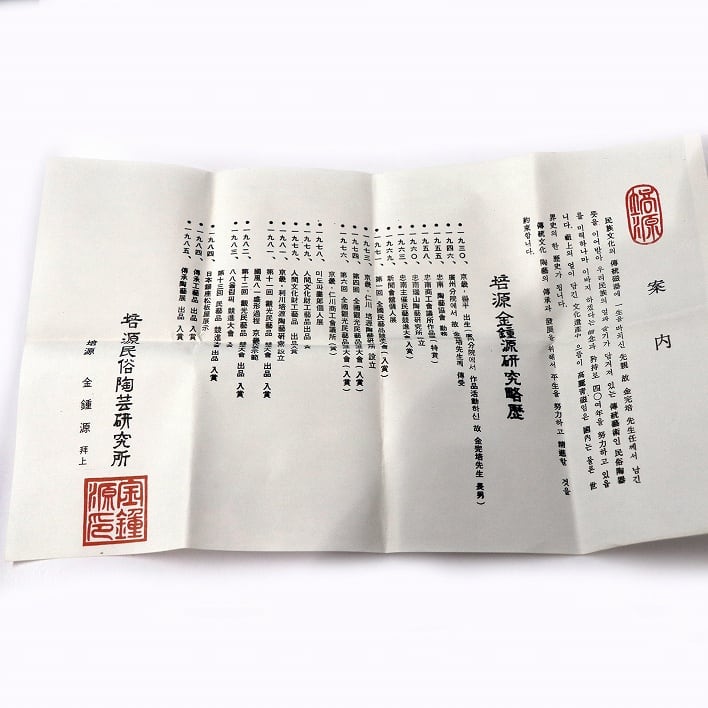 案內
民族文化의 傳統磁器에 一生을 바치신 先親 故 金完培 先生任께서 남긴
뜻을 이어받아 우리民族의 얼과 슬기가 담겨져 있는 傳統藝術인 民俗陶器
를 미력하나마 이까지 하겠다는 信念과 矜持로 四〇여年을 努力하고 있읍
니다. 祖上의 얼이 남긴 文化遺産中 으뜸이 高麗靑磁임은 國內는 물론 世
界史의 한 歷史가 됩니다.
傳統文化 陶藝의 傳承과 發展을 위해서 平生을 努力하고 精進할 것을
約束합니다.
培源金鍾源研究略歷
一九三〇、京畿·
廣州分院에서 故 金完培先生께 傳受
一九四六、忠南 陶藝協會 勤務
一九五五、忠南商工會議所作品(特賞)
一九五八、忠南瑞山陶藝研究所 設立
一九六〇、忠南主催民藝競進大會(入賞)
一九六九、新聞會館個人展
一九七三、京畿·仁川 培源陶藝研究所 設立
第四回 全國觀光民藝品競大會(入賞)
一九七六、第六回 全國觀光民藝品競大會(入賞)
京畿·仁川商工會議所
一九七八、미도파畵廊個人展
一九七九、人間文化財工藝品出品
一九八〇、人間文化財工藝品 出品 入賞
一九八一、京畿·利川培源陶藝研究所設立
第十一回 觀光民藝品 競大會 出品 入賞
國風八一盛形過程 京畿
一九八二、第十二回 觀光民藝品 競大會 出品 入賞
一九八三、八八올림픽 競進大會
第十三回 民藝品 競進大會 出品 入賞
一九八四、日本銀座松坂屋展示
一九八四、傳承工藝品 出品 入賞
一九八五、傳承陶藝展 出品 入賞
培源民俗陶芸研究所
培源 金鍾源 拜上
金鍾源印